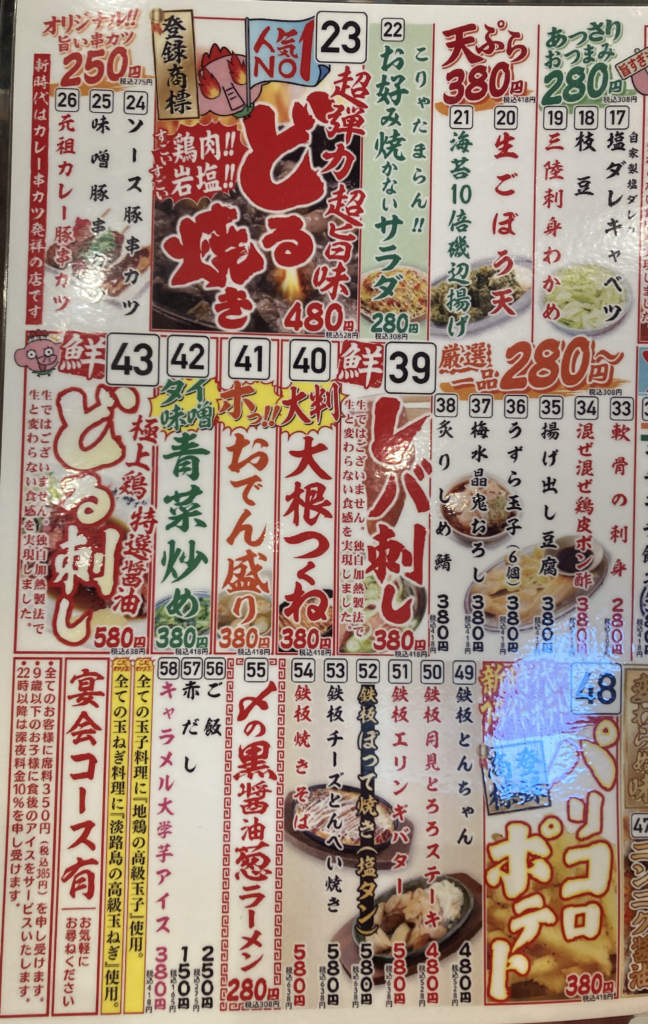 あっさり
おつまみ
280円
税込308円
自家製塩ダレ
17 塩ダレキャベツ
18 枝豆
19 三陸刺身わかめ
天ぷら
380円
税込418円
20 生ごぼう天
21 海苔10倍磯辺揚げ
こりゃたまらん!!
22 お好み焼かないサラダ
280円
税込308円
23
人気NO1
登録商標
超弾力 超旨味
どる焼き
鶏肉!!
岩塩!!
すごいすごい
480円
税込528円
オリジナル!!
旨い串カツ
250円
税込275円
24 ソース豚串カツ
25 味噌豚串カツ
26 元祖カレー豚串カツ
新時代はカレー串カツ発祥の店です
厳選一品
280円〜
税込308円
33 軟骨の刺身 280円
34 混ぜ混ぜ鶏皮ポン酢 380円
35 揚げ出し豆腐 380円
36 うずら玉子(6個) 380円
37 梅水晶鬼おろし 380円
38 炙りしめ鯖 380円
鮮
39
レバ刺し
生ではございません。独自加熱製法で
生と変わらない食感を実現しました。
380円
税込418円
40
大判
大根つくね
380円
税込418円
41
ホっ!!
おでん盛り
380円
税込418円
42
タイ味噌
青菜炒め
380円
税込418円
鮮
43
極上鶏 特選醤油
どる刺し
生ではございません。独自加熱製法で
生と変わらない食感を実現しました。
580円
税込638円
47
ニンニク醤油
48
パリコロ
ポテト
登録商標
380円
税込418円
49 鉄板とんちゃん 480円 税込528円
50 鉄板月見とろろステーキ 480円 税込528円
51 鉄板エリンギバター 580円 税込638円
52 鉄板ぼって焼き(塩タン) 580円 税込638円
53 鉄板チーズとんぺい焼き 580円 税込638円
54 鉄板焼きそば 580円 税込638円
55
〆の黒醤油葱ラーメン
280円
税込308円
56 ご飯 250円 税込275円
57 赤だし 150円 税込165円
58 キャラメル大学芋アイス 380円 税込418円
全ての玉子料理に『地鶏の高級玉子』使用。
全ての玉ねぎ料理に『淡路島の高級玉ねぎ』使用。
宴会コース有
お気軽に
お尋ねください
●全てのお客様に席料350円(税込385円)を申し受けます。
●9歳以下のお子様に食後のアイスをサービスいたします。
22時以降は深夜料金10%を申し受けます。